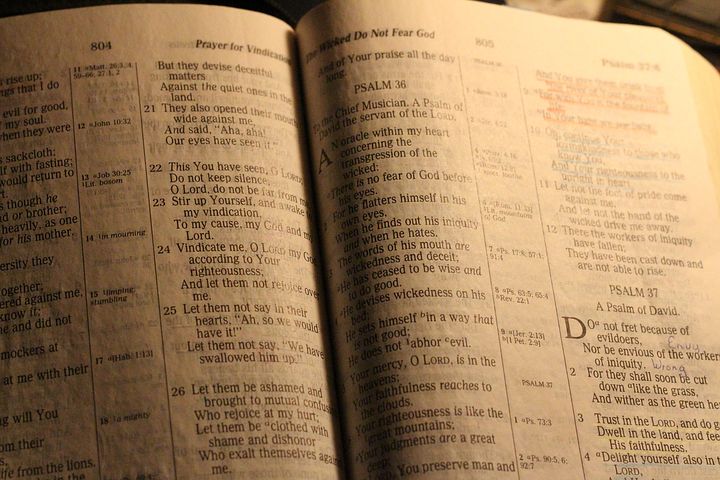 804
Prayer for Vindication
rise up;
things that I do
evil for good,
of my soul.
when they were
sackcloth:
self with fasting;
would return to
as though he
or brother;
heavily, as one
for his mother.
together;
me and did not
mockers at
at me with their
will You
from their
life from the lions.
11 Matt. 26:3, 4,
59–66; 27:1, 2
12 John 10:32
13 Job 30:25
Lit. bosom
14 in mourning
15 limping,
stumbling
17 [Hab. 1:13]
18 a mighty
But they devise deceitful
matters
Against the quiet ones in the
land.
21 They also opened their mouth
wide against me,
And said, "Aha, aha!
Our eyes have seen it."
22 This You have seen, O LORD;
Do not keep silence.
O Lord, do not be far from me
23 Stir up Yourself, and awake to
my vindication,
To my cause, my God and my
Lord.
24 Vindicate me, O LORD my God,
according to Your
righteousness;
And let them not rejoice over
me.
25 Let them not say in their
hearts, "Ah, so we would
have it!"
Let them not say, "We have
swallowed him up."
26 Let them be ashamed and
brought to mutual confusion
Who rejoice at my hurt;
Let them be clothed with
shame and dishonor
Who exalt themselves against
me.
The Wicked Do Not Fear God
805
Psalm 37:4
And of Your praise all the day
long.
PSALM 36
To the Chief Musician. A Psalm of
David the servant of the LORD.
AN oracle within my heart
concerning the
transgression of the
wicked:
There is no fear of God before
his eyes.
For he flatters himself in his
own eyes,
When he finds out his iniquity
and when he hates.
The words of his mouth are
wickedness and deceit;
He has ceased to be wise and
to do good.
He devises wickedness on his
bed;
He sets himself in a way that
is not good;
He does not abhor evil.
Your mercy, O LORD, is in the
heavens;
Your faithfulness reaches to
the clouds.
Your righteousness is like the
great mountains;
Your judgments are a great
deep;
LORD, You preserve man and
7 Ps. 17:8; 57:1;
91:4
8 Ps. 63:5; 65:4
Rev. 22:1
9 [Jer. 2:13]
[1 Pet. 2:9]
PSALM 37
1 Ps. 73:3
2 Ps. 90:5, 6;
92:7
righteousness to the
upright in heart.
11 Let not the foot of pride come
against me,
And let not the hand of the
wicked drive me away.
12 There the workers of iniquity
have fallen;
They have been cast down and
are not able to rise.
PSALM 37
A Psalm of David.
DO not fret because of
evildoers,
Envy
Nor be envious of the workers
of iniquity. Wrong
2 For they shall soon be cut
down like the grass,
And wither as the green he
3 Trust in the LORD, and do g
Dwell in the land, and feed
His faithfulness.
4 Delight yourself also in t
LORD,